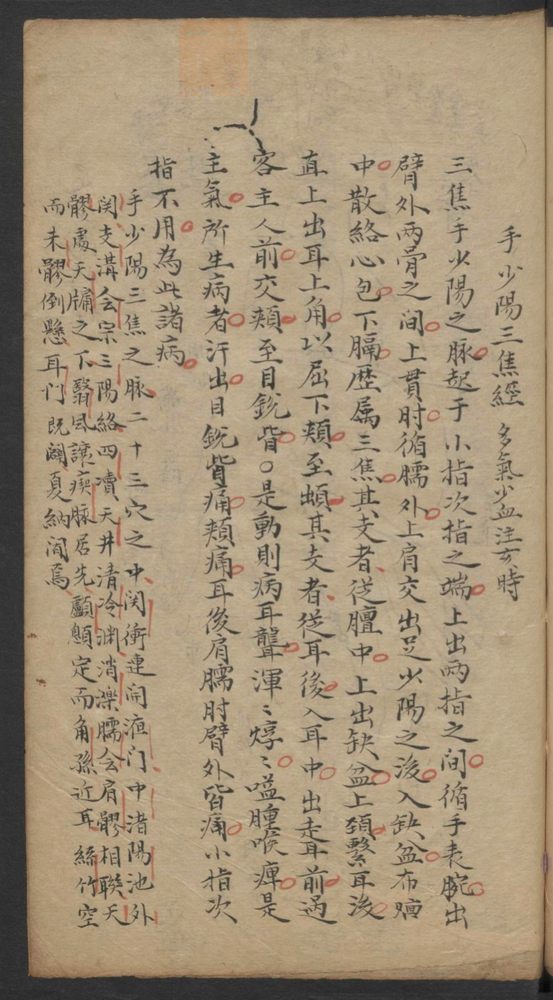 手少陽三焦經 多氣少血注亥時
三焦手少陽之脉起于小指次指之端上出兩指之间循手表腕出
臂外兩骨之间上貫肘循臑外上肩交出足少陽之後入缺盆布膻
中散絡心包下膈歷属三焦其支者従膻中上出缺盆上頸繫耳後
直上出耳上角以屈下頬至䪼其支者従耳後入耳中出走耳前过
客主人前交頬至目鋭眥○是動則病耳聾渾〻焞〻嗌腫喉痺是
主氣所生病者汗出目鋭眥痛頬痛耳後肩臑肘臂外皆痛小指次
指不用為此諸病
手少陽三焦之脉二十三穴之中関衝連闹液门中渚陽池外
関支溝会宗三陽絡四瀆天井清冷渊消濼臑会肩髎相聯天
髎處天牖之下翳风讓瘈脉居先顱顖定而角孫近耳絲竹空
而未髎倒懸耳门既闢夏納闻焉